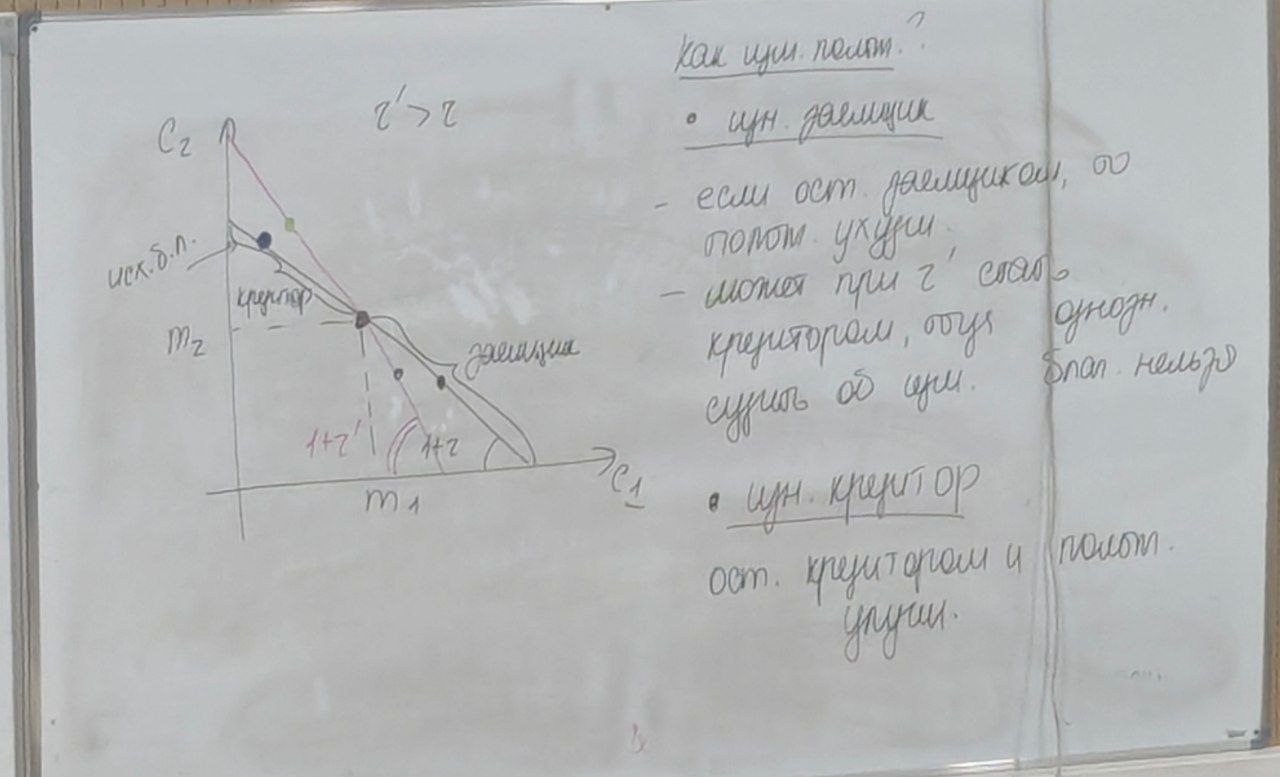 C₂
r' > r
исх. б. л.
кредитор
m₂
заемщик
1+r'
1+r
m₁
C₁
Как изм. полож.?
• изн. заемщик
- если ост. заемщиком, то
полож. ухудш.
- может при r' стать
кредитором, тогда однозн.
судить об изм. благ. нельзя
• изн. кредитор
ост. кредитором и полож.
улучш.